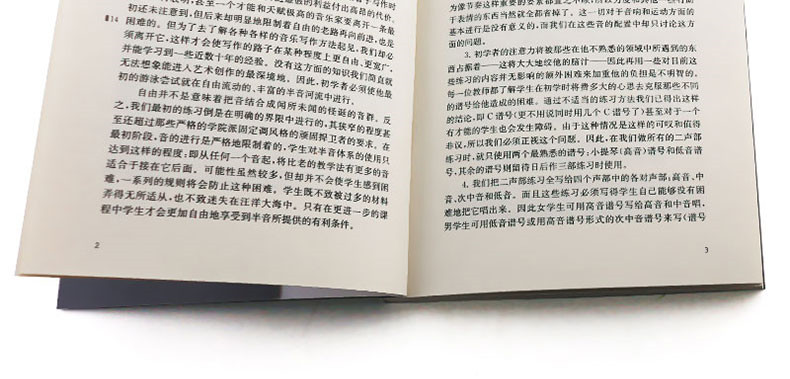 甚至一个才能和天赋极高的音乐家要离开一条
初还未注意到,但后来却明显地限制着自由的老路再向前进,也是
困难的。但为了去了解各种各样的音乐写作方法起见,我们却必
须离开它,这样才会使写作的路子在某种程度上更自由、更宽广,
并能学习到一些近数十年的经验。没有这方面的知识我们简直就
无法想象能进入艺术创作的最深境地。因此,初学者必须使他最
初的游泳尝试就在自由流动的、丰富的半音河流中进行。
自由并不是意味着把音结合成闻所未闻的怪诞的音群。反
之,我们最初的练习倒是在明确的界限中进行的,其狭窄的程度甚
至还超过那些严格的学院派固定调风格的顽固捍卫者的要求。在
最初阶段,音的进行是严格地限制着的,学生对半音体系的使用只
达到这样的程度:即从任何一个音起,将比老的教学法有更多的音
适合于接在它后面。可能性虽然较多,但却并不会使学生感到困
难,一系列的规则将会防止这种困难。学生既不致被过多的材料
弄得无所适从,也不致迷失在汪洋大海中。只有在更进一步的课
程中学生才会更加自由地享受到半音所提供的有利条件。
2
于表情的东西当然就全都省掉了。这一切对于音响和运动方面的
基本进行是没有意义的,而我们在这些音的配置中却只讨论这方
面的问题。
3. 初学者的注意力将被那些在他不熟悉的领域中所遇到的东
西占据着——这将大大地绞他的脑汁——因此再用一些对目前这
些练习的内容并无影响的额外困难来加重他的负担是不明智的。
每一位教师都了解学生在初学时将费多大的心思去克服那些不同
的谱号给他造成的困难。通过不适当的练习方法我们已得出这样
的结论,即C谱号(更不用说同时用几个C谱号了)甚至对于一个
有才能的学生也会发生障碍。由于这种情况是这样的可叹和值得
非议,所以我们必须正视这个问题。因此,在我们做所有的二声部
练习时,就只使用两个最熟悉的谱号:小提琴(高音)谱号和低音谱
号,其余的谱号则留待日后作三部练习时使用。
4. 我们把二声部练习全写给四个声部中的各对声部:高音、中
音、次中音和低音。而且这些练习必须写得学生自己能够没有困
难地把它唱出来。因此女学生可用高音谱号写给高音和中音唱,
男学生可用低音谱号或用高音谱号形式的次中音谱号来写(谱号
3